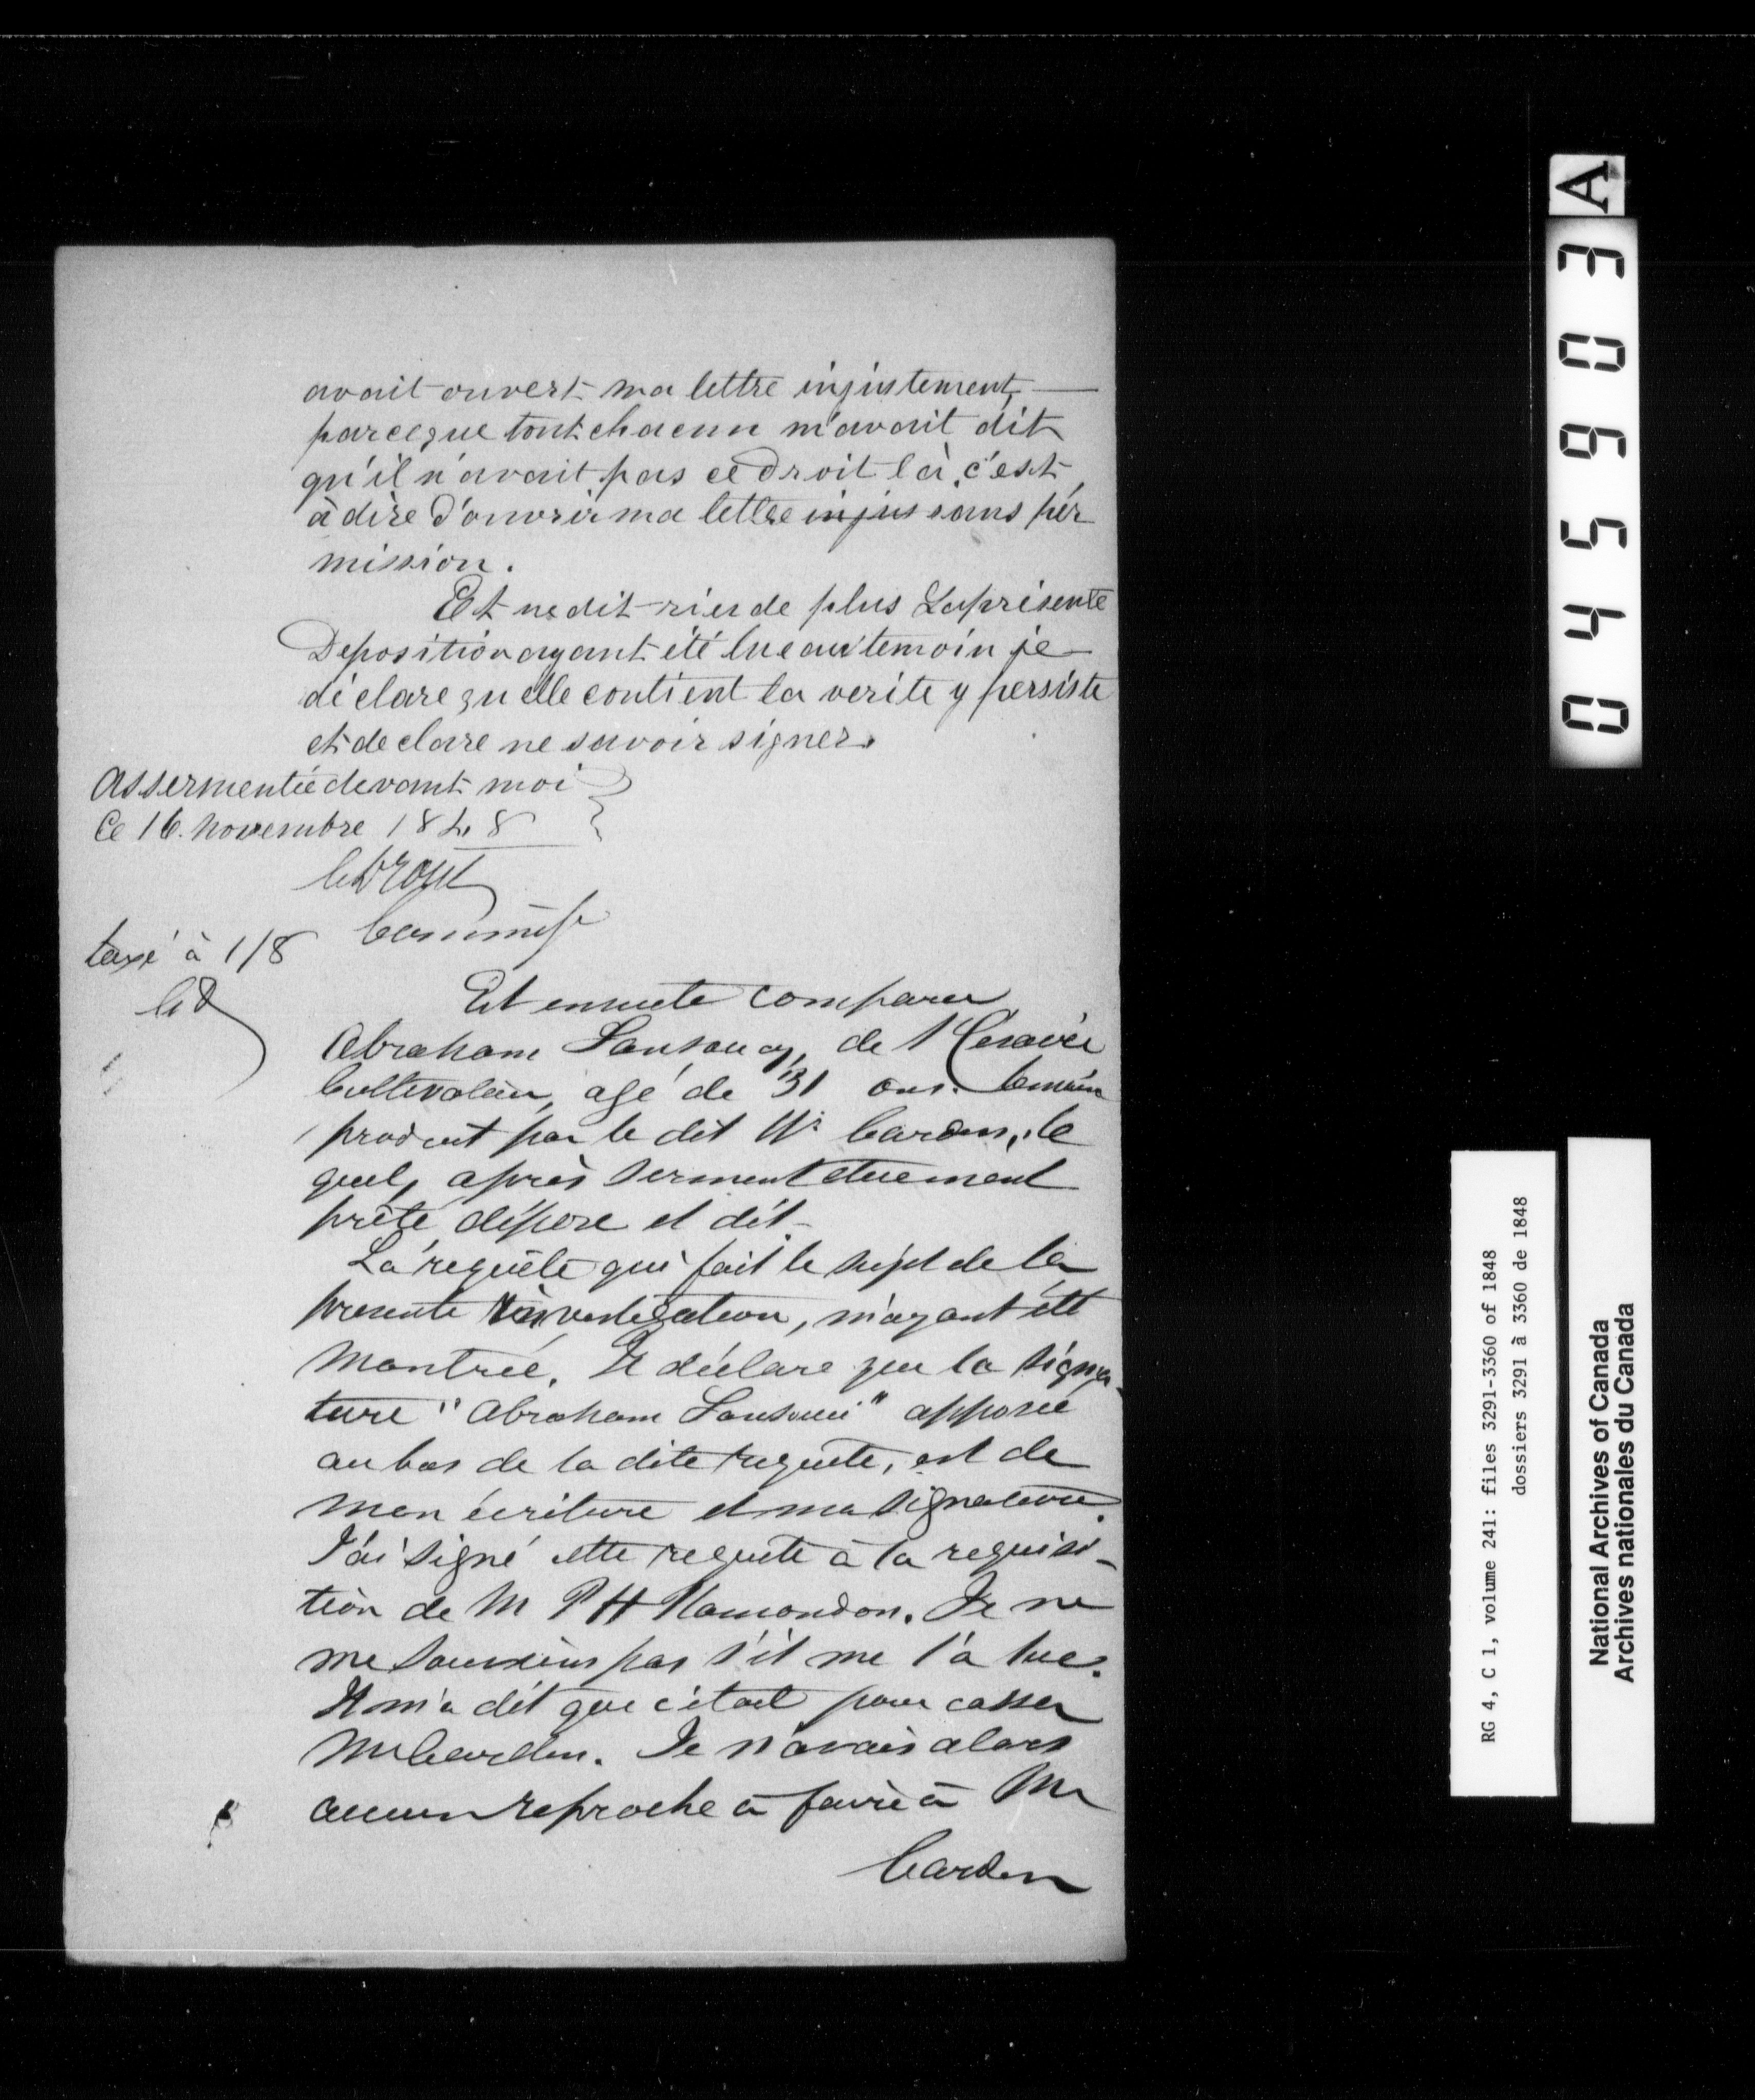 avait ouvert ma lettre injustement,
parceque tout chacun m'avait dit
qu'il n'avait pas ce droit là, c'est
à dire d'ouvrir ma lettre injus sans per
mission.
Et ne dit rien de plus La présente
Deposition ayant été lue au temoin je
déclare qu elle contient la verite y persiste
et declare ne savoir signer.
Assermentée devant moi
Ce 16. novembre 1848
Commisse
taxé à 1/8
Et ensuite comparu
Abraham Sansoucy, de St Cesaire
Cultivateur, agé de 31 ans. temoin
produit par le dit Wm Carden, le
quel, après serment duement
prêté dépose et dit
La requête qui fait le sujet de la
presente investigation, m'ayant été
Montrée. Il déclare que la signa-
ture "Abraham Sansouci" apposée
au bas de la dite requete, est de
mon écriture et ma signature.
J'ai signé cette requete à la requisi-
tion de M P H Hamondon. Je ne
me souviens pas s'il me l'a lue.
Il m'a dit que c'etait pour casser
Mr Carden. Je n'avais alors
aucun reproche à faire à Mr
Carden
A
045903
RG 4, C 1, volume 241: files 3291-3360 of 1848
dossiers 3291 à 3360 de 1848
National Archives of Canada
Archives nationales du Canada